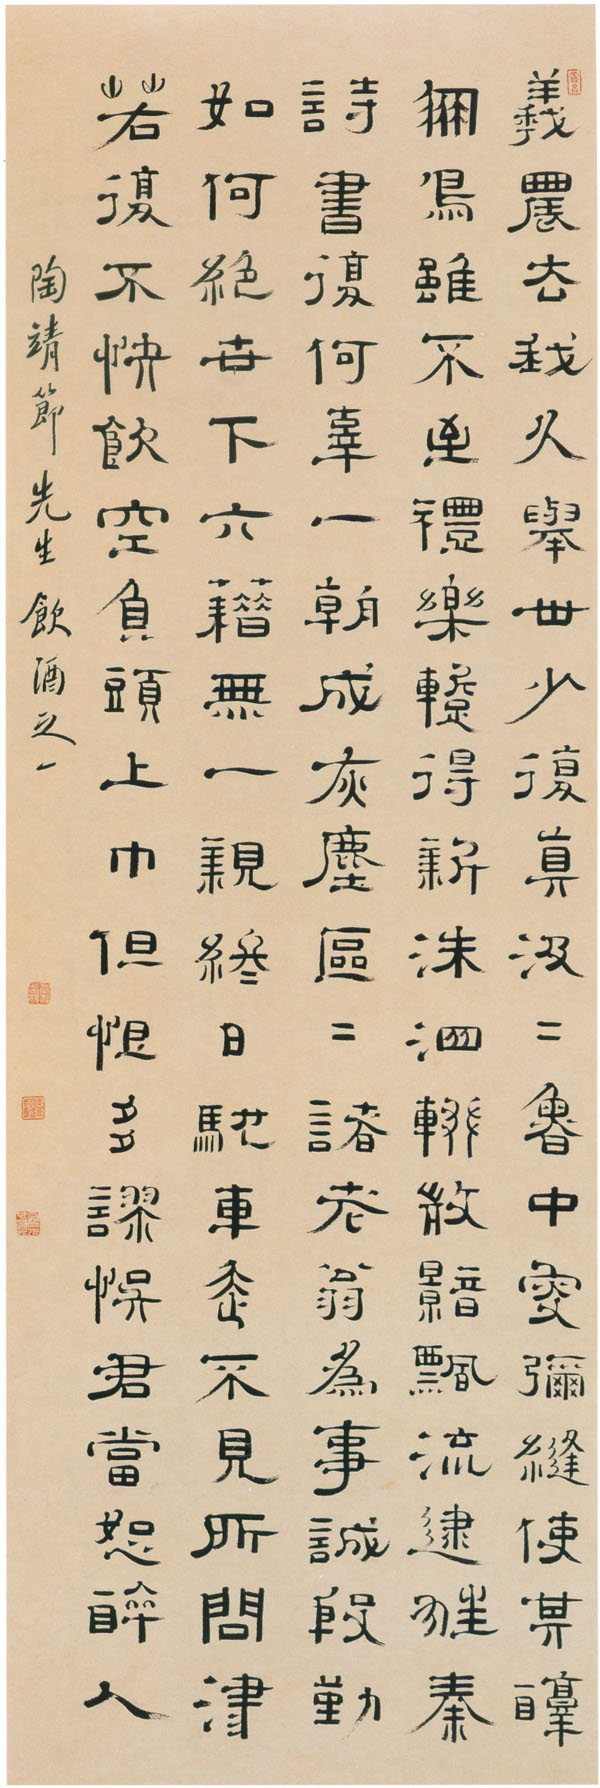 羲農去我久舉世少復真汲二魯中叟彌縫使其醇
鳳鳥雖不至禮樂暫得新洙泗輟微響飄流逮狂秦
詩書復何辜一朝成灰塵區二諸老翁為事誠殷勤
如何絕世下六藉無一親終日馳車走不見所問津
若復不快飲空負頭上巾但恨多謬悞君當恕醉人
陶靖節先生飲酒之一